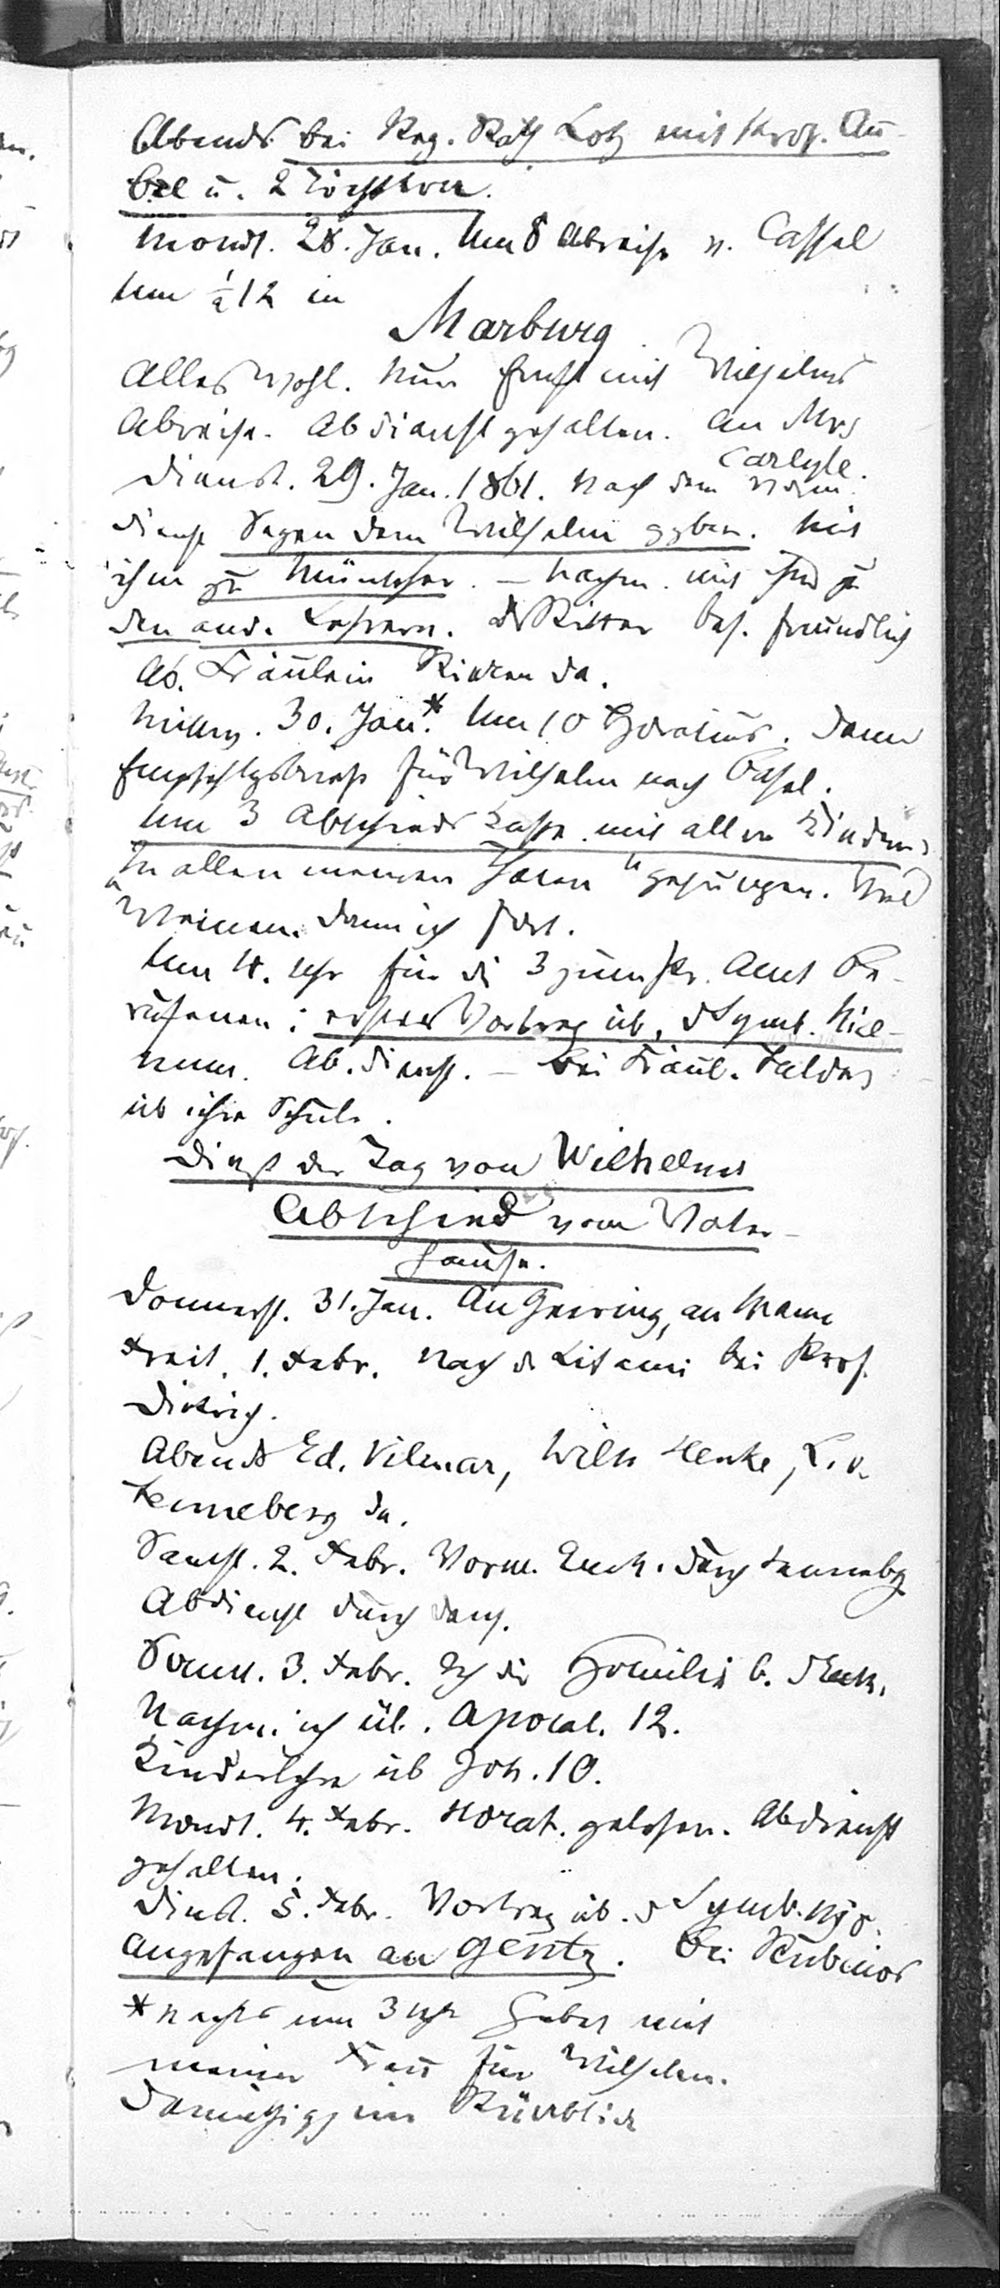 Abends bei Reg. Rath Lotz mit Prof. Au-
bel u. 2 Töchtern.
Mont. 28. Jan. Um 8 Abreise v. Cassel
Um ½12 in
Marburg
Alles wohl. Nur Ernst mit Wilhelms
Abreise. Abdienst gehalten. An Mrs
Carlyle.
Dienst. 29. Jan. 1861. Nach dem
dienst Segen dem Wilhelm ggben. Mit
ihm zu Münscher. – Nachm. mit ihm zu
den and. Lehrern. D Ritter bes. freundlich
Ab. Fräulein da.
Mittw. 30. Jan.* Um 10 Horatius. Dann
Empfehlgsbriefe für Wilhelm nach Basel.
Um 3 Abschieds Kaffe mit allen Kindern
"In allen meinen Thaten" gesungen. Viel
Weinen. Dann ich fort.
Um 4. Uhr für die 3 zum Pr. Amt Be-
rufenen: erster Vortrag üb. d Symb. Nicae-
num. Ab. dienst. – Bei Fräul.
üb ihre Schule.
Dieß der Tag von Wilhelms
Abschied vom Vater-
hause.
Donnerst. 31. Jan. An Geering, an Mann
Freit. 1. Febr. Nach d Litanei bei Prof.
Dietrich.
Abends Ed. Vilmar, Wilh Henke, L. v.
Henneberg da.
Samst. 2. Febr. Vorm. Euch. durch Hennebg
Abdienst durch dens.
Sonnt. 3. Febr. Ich die Homilie b. d Euch.
Nachm. ich üb. Apocal. 12.
Kinderlehre üb Joh. 10.
Mont. 4. Febr. Horat. gelesen. Abdienst
gehalten.
Dienst. 5. Febr. Vortrag üb. d Symb.
Angefangen an Gentz. Bei Rubinos
*Nachts um 3 Uhr Gebet mit
meiner Frau für Wilhelm.
im Rückblick